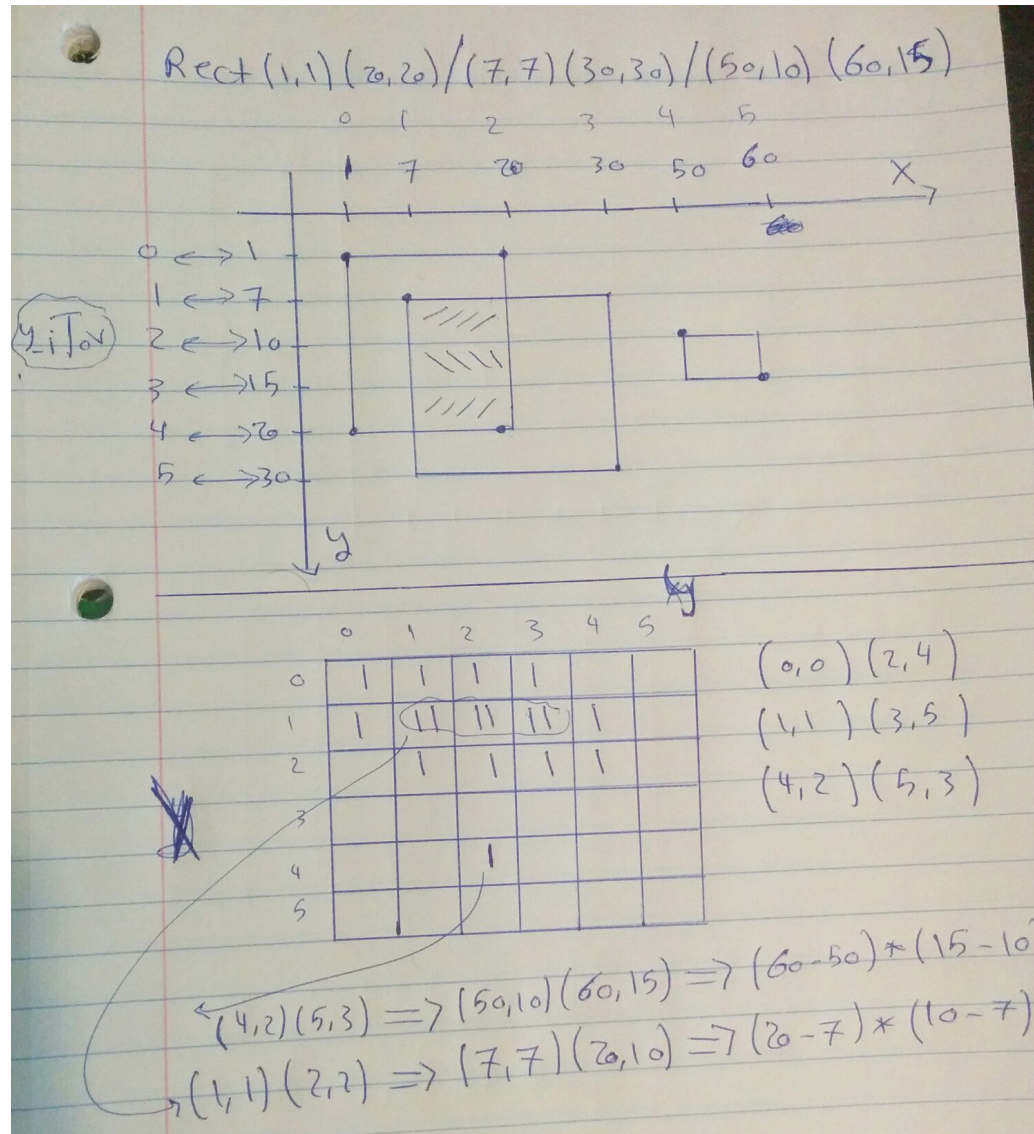 Rect (1,1) (20,20) / (7,7) (30,30) / (50,10) (60,15)
0 1 2 3 4 5
1 7 20 30 50 60
X
0 <-> 1
1 <-> 7
y_iTov
2 <-> 10
3 <-> 15
4 <-> 20
5 <-> 30
y
0 1 2 3 4 5
0 1 1 1 1
1 1 11 11 11 1
2 1 1 1 1
3
4 1
5
(0,0) (2,4)
(1,1) (3,5)
(4,2) (5,3)
(4,2) (5,3) => (50,10) (60,15) => (60-50) * (15-10
(1,1) (2,2) => (7,7) (20,10) => (20-7) * (10-7)